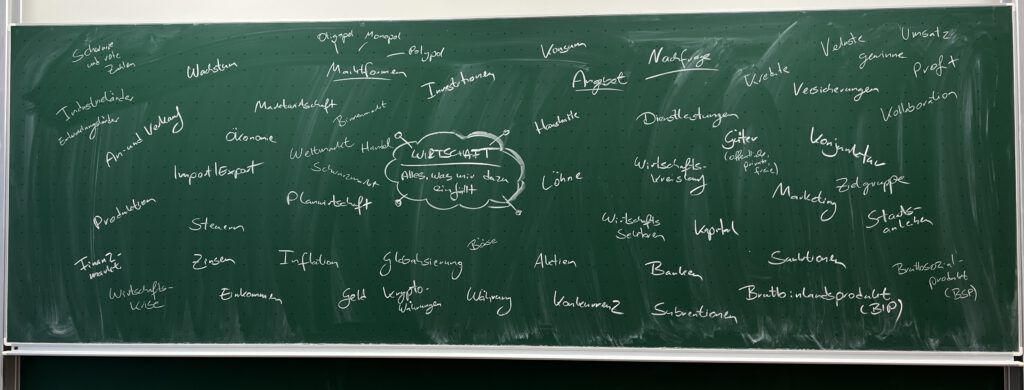 Schwarze
und rote
Zahlen
Wachstum
Oligopol
Monopol
Polypol
Marktformen
Investitionen
Konsum
Angebot
Nachfrage
Kredite
Verluste
gewinne
Umsatz
Profit
Versicherungen
Kollaboration
Industrieländer
Entwicklungsländer
An- und Verkauf
Ökonomie
Marktwirtschaft
Binnenmarkt
Weltmarkt
Handel
Schwarzmarkt
WIRTSCHAFT
Alles, was mir dazu
einfällt
Dienstleistungen
Güter
Konjunktur
Import/Export
Planwirtschaft
Löhne
Wirtschafts-
kreislauf
Marketing
Zielgruppe
Staats-
anleihen
Produktion
Steuern
Wirtschafts
Sektoren
Kapital
Finanz-
markt
Zinsen
Inflation
Globalisierung
Börse
Aktien
Banken
Sanktionen
Bruttosozial-
produkt
(BSP)
Wirtschafts-
krise
Einkommen
Geld
Krypto-
Währungen
Währung
Konkurrenz
Subventionen
Bruttoinlandsprodukt
(BIP)